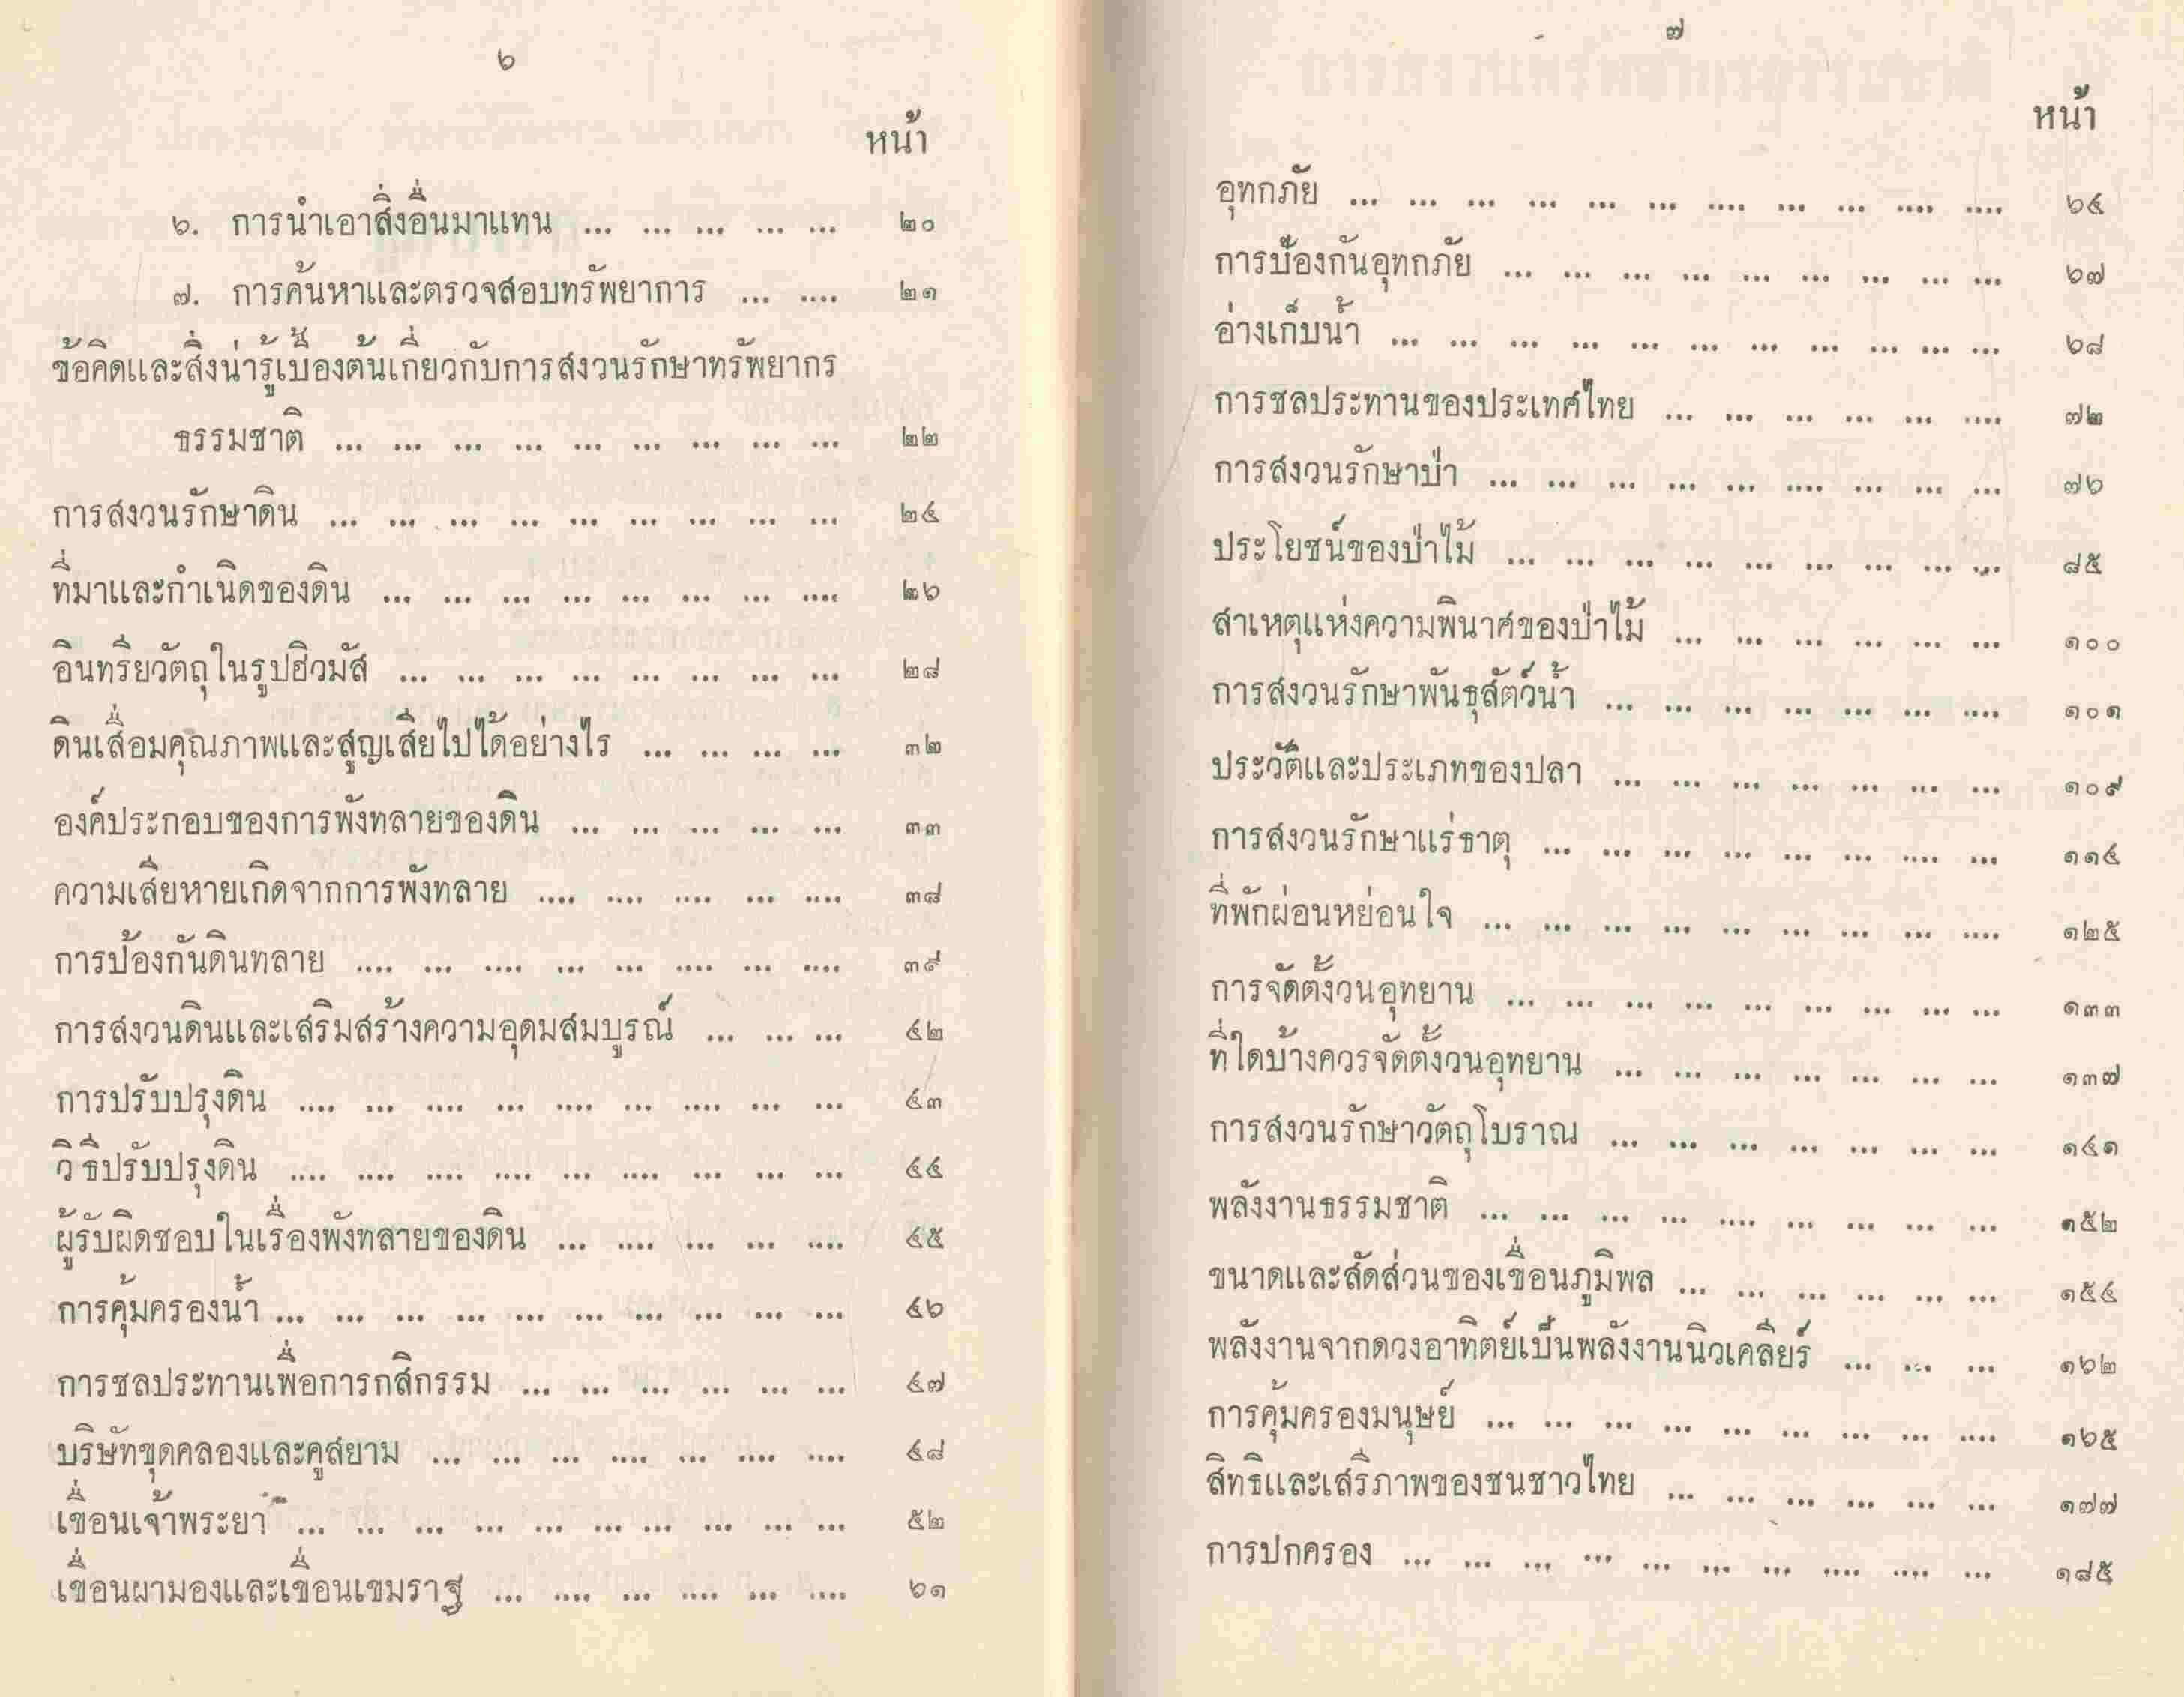 ๖
หน้า
๖. การนำเอาสิ่งอื่นมาแทน ... ... ... ... ... ๒๐
๗. การค้นหาและตรวจสอบทรัพยาการ ... .... ๒๑
ข้อคิดและสิ่งน่ารู้เบื้องต้นเกี่ยวกับการสงวนรักษาทรัพยากร
ธรรมชาติ ... ... ... ... ... ... ... ... ... ๒๒
การสงวนรักษาดิน ... ... ... ... ... ... ... ... ... ๒๔
ที่มาและกำเนิดของดิน ... ... ... ... ... ... ... .... ๒๖
อินทรียวัตถุในรูปฮิวมัส ... ... ... ... ... ... ... ... ๒๘
ดินเสื่อมคุณภาพและสูญเสียไปได้อย่างไร ... ... ... ... ๓๒
องค์ประกอบของการพังทลายของดิน ... ... ... ... ... ๓๓
ความเสียหายเกิดจากการพังทลาย .... .... .... ... .... ๓๘
การป้องกันดินทลาย .... ... .... ... ... .... ... .... ๓๙
การสงวนดินและเสริมสร้างความอุดมสมบูรณ์ ... ... ... ๔๒
การปรับปรุงดิน .... ... .... ... .... ... .... ... ... ๔๓
วิธีปรับปรุงดิน .... .... .... .... ... .... ... ... ... ๔๔
ผู้รับผิดชอบในเรื่องพังทลายของดิน ... .... ... ... .... ๔๕
การคุ้มครองน้ำ ... ... ... ... ... ... ... ... ... ... ๔๖
การชลประทานเพื่อการกสิกรรม ... ... ... ... ... ... ๔๗
บริษัทขุดคลองและคูสยาม ... ... ... .... ... .... .... ๔๘
เขื่อนเจ้าพระยา ... ... ... ... ... ... ... ... ... ... ๕๒
เขื่อนผามองและเขื่อนเขมราฐ ... .... ... .... ... .... ๖๑
๗
หน้า
อุทกภัย ... ... ... ... ... ... .... ... ... .... .... ๖๔
การป้องกันอุทกภัย ... ... ... ... ... ... ... ... ... ๖๗
อ่างเก็บน้ำ ... ... ... ... ... ... ... ... ... ... ... ๖๘
การชลประทานของประเทศไทย ... ... ... ... ... .... ๗๒
การสงวนรักษาป่า ... ... ... ... ... .... ... ... ... ๗๖
ประโยชน์ของป่าไม้ ... ... ... ... ... ... ... ... ... ๘๕
สาเหตุแห่งความพินาศของป่าไม้ ... ... ... ... ... ... ๑๐๐
การสงวนรักษาพันธุสัตว์น้ำ ... ... ... ... ... ... .... ๑๐๑
ประวัติและประเภทของปลา ... ... ... ... ... ... ... ๑๐๙
การสงวนรักษาแร่ธาตุ ... ... ... ... ... ... .... ... ๑๑๔
ที่พักผ่อนหย่อนใจ ... ... ... ... ... ... ... ... .... ๑๒๕
การจัดตั้งวนอุทยาน ... ... ... ... ... ... ... ... ... ๑๓๓
ที่ใดบ้างควรจัดตั้งวนอุทยาน ... ... ... ... ... ... ... ๑๓๗
การสงวนรักษาวัตถุโบราณ ... ... ... ... ... ... ... ๑๔๑
พลังงานธรรมชาติ ... ... ... ... .... ... ... ... ... ๑๕๒
ขนาดและสัดส่วนของเขื่อนภูมิพล ... ... ... ... ... ... ๑๕๔
พลังงานจากดวงอาทิตย์เป็นพลังงานนิวเคลียร์ ... ... ... ๑๖๒
การคุ้มครองมนุษย์ ... ... ... ... ... ... ... ... .... ๑๖๕
สิทธิและเสรีภาพของชนชาวไทย ... ... ... ... ... ... ๑๗๗
การปกครอง ... ... ... ... ... ... ... .... .... ... ๑๘๕